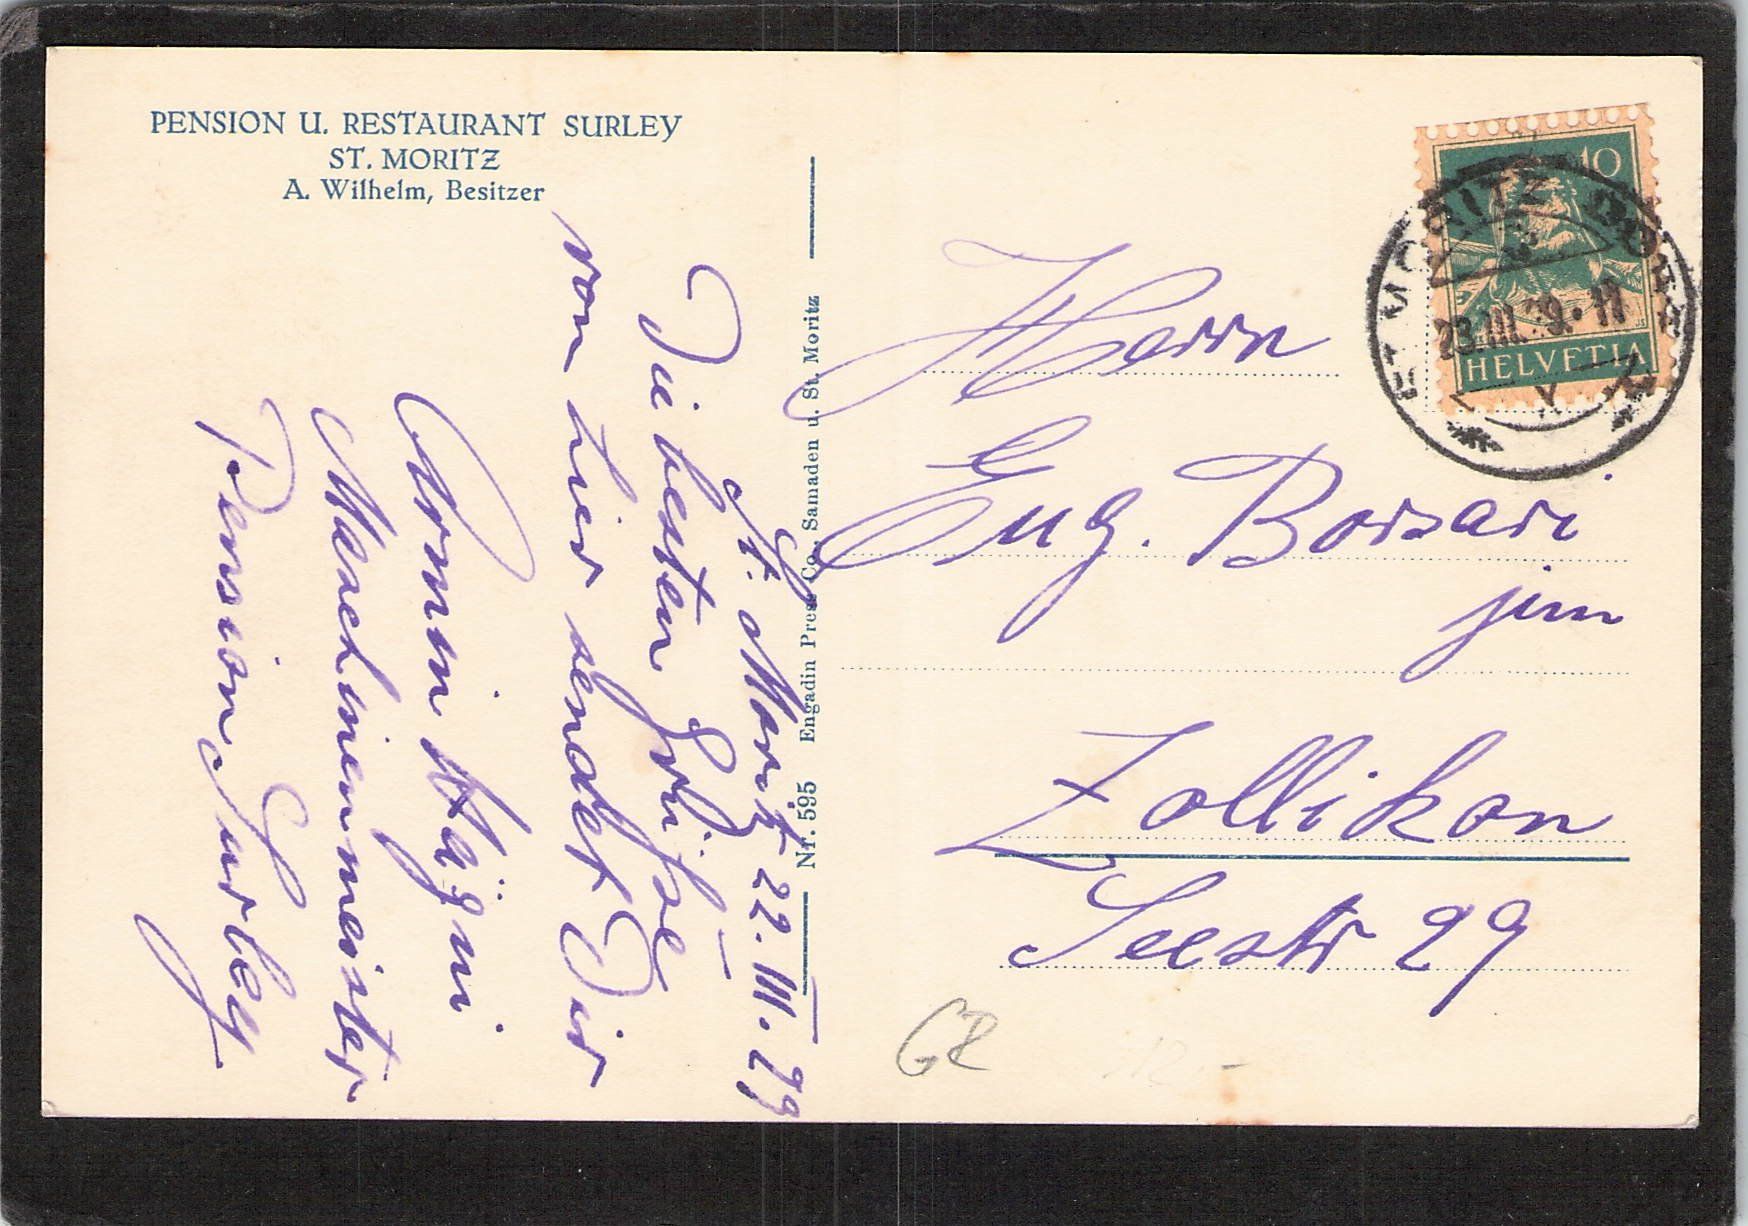 PENSION U. RESTAURANT SURLEY
ST. MORITZ
A. Wilhelm, Besitzer
St. Moritz 22. III. 29
Die besten Grüße
von hier sendet Dir
Armin Hägni
Maschinenmeister
Pension Surley
Nr. 595 Engadin Press Co., Samaden u. St. Moritz
Herrn
Eug. Borsari
jun
Zollikon
Seestr 29
10
HELVETIA
ST. MORITZ DORF
23.III.29.11
GR